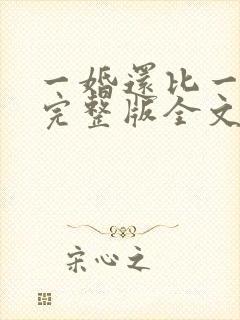 一婚還比一
完整版全文
宋心之